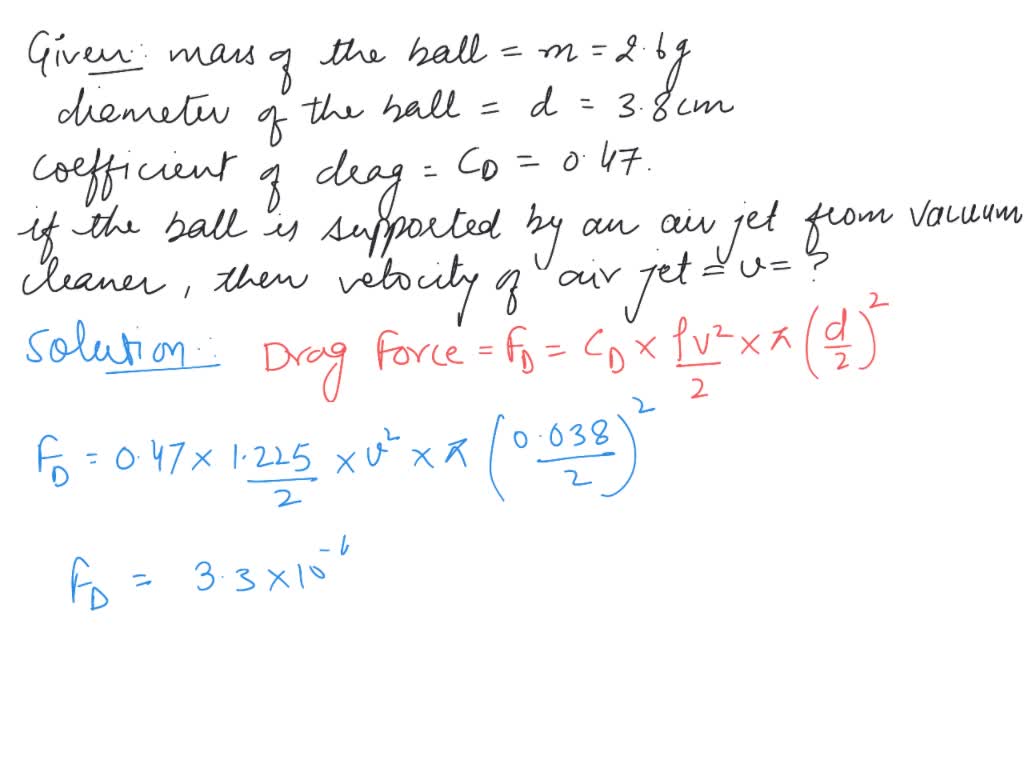 Given: mass of the ball = m = 2.6g
diameter of the ball = d = 3.8cm
coefficient of drag = CD = 0.47.
if the ball is supported by an air jet from vacuum
cleaner, then velocity of air jet = v = ?
Solution: Drag Force = FD = CD × ρv²/2 × π (d/2)²
FD = 0.47 × 1.225/2 × v² × π (0.038/2)²
FD = 3.3 × 10⁻⁶